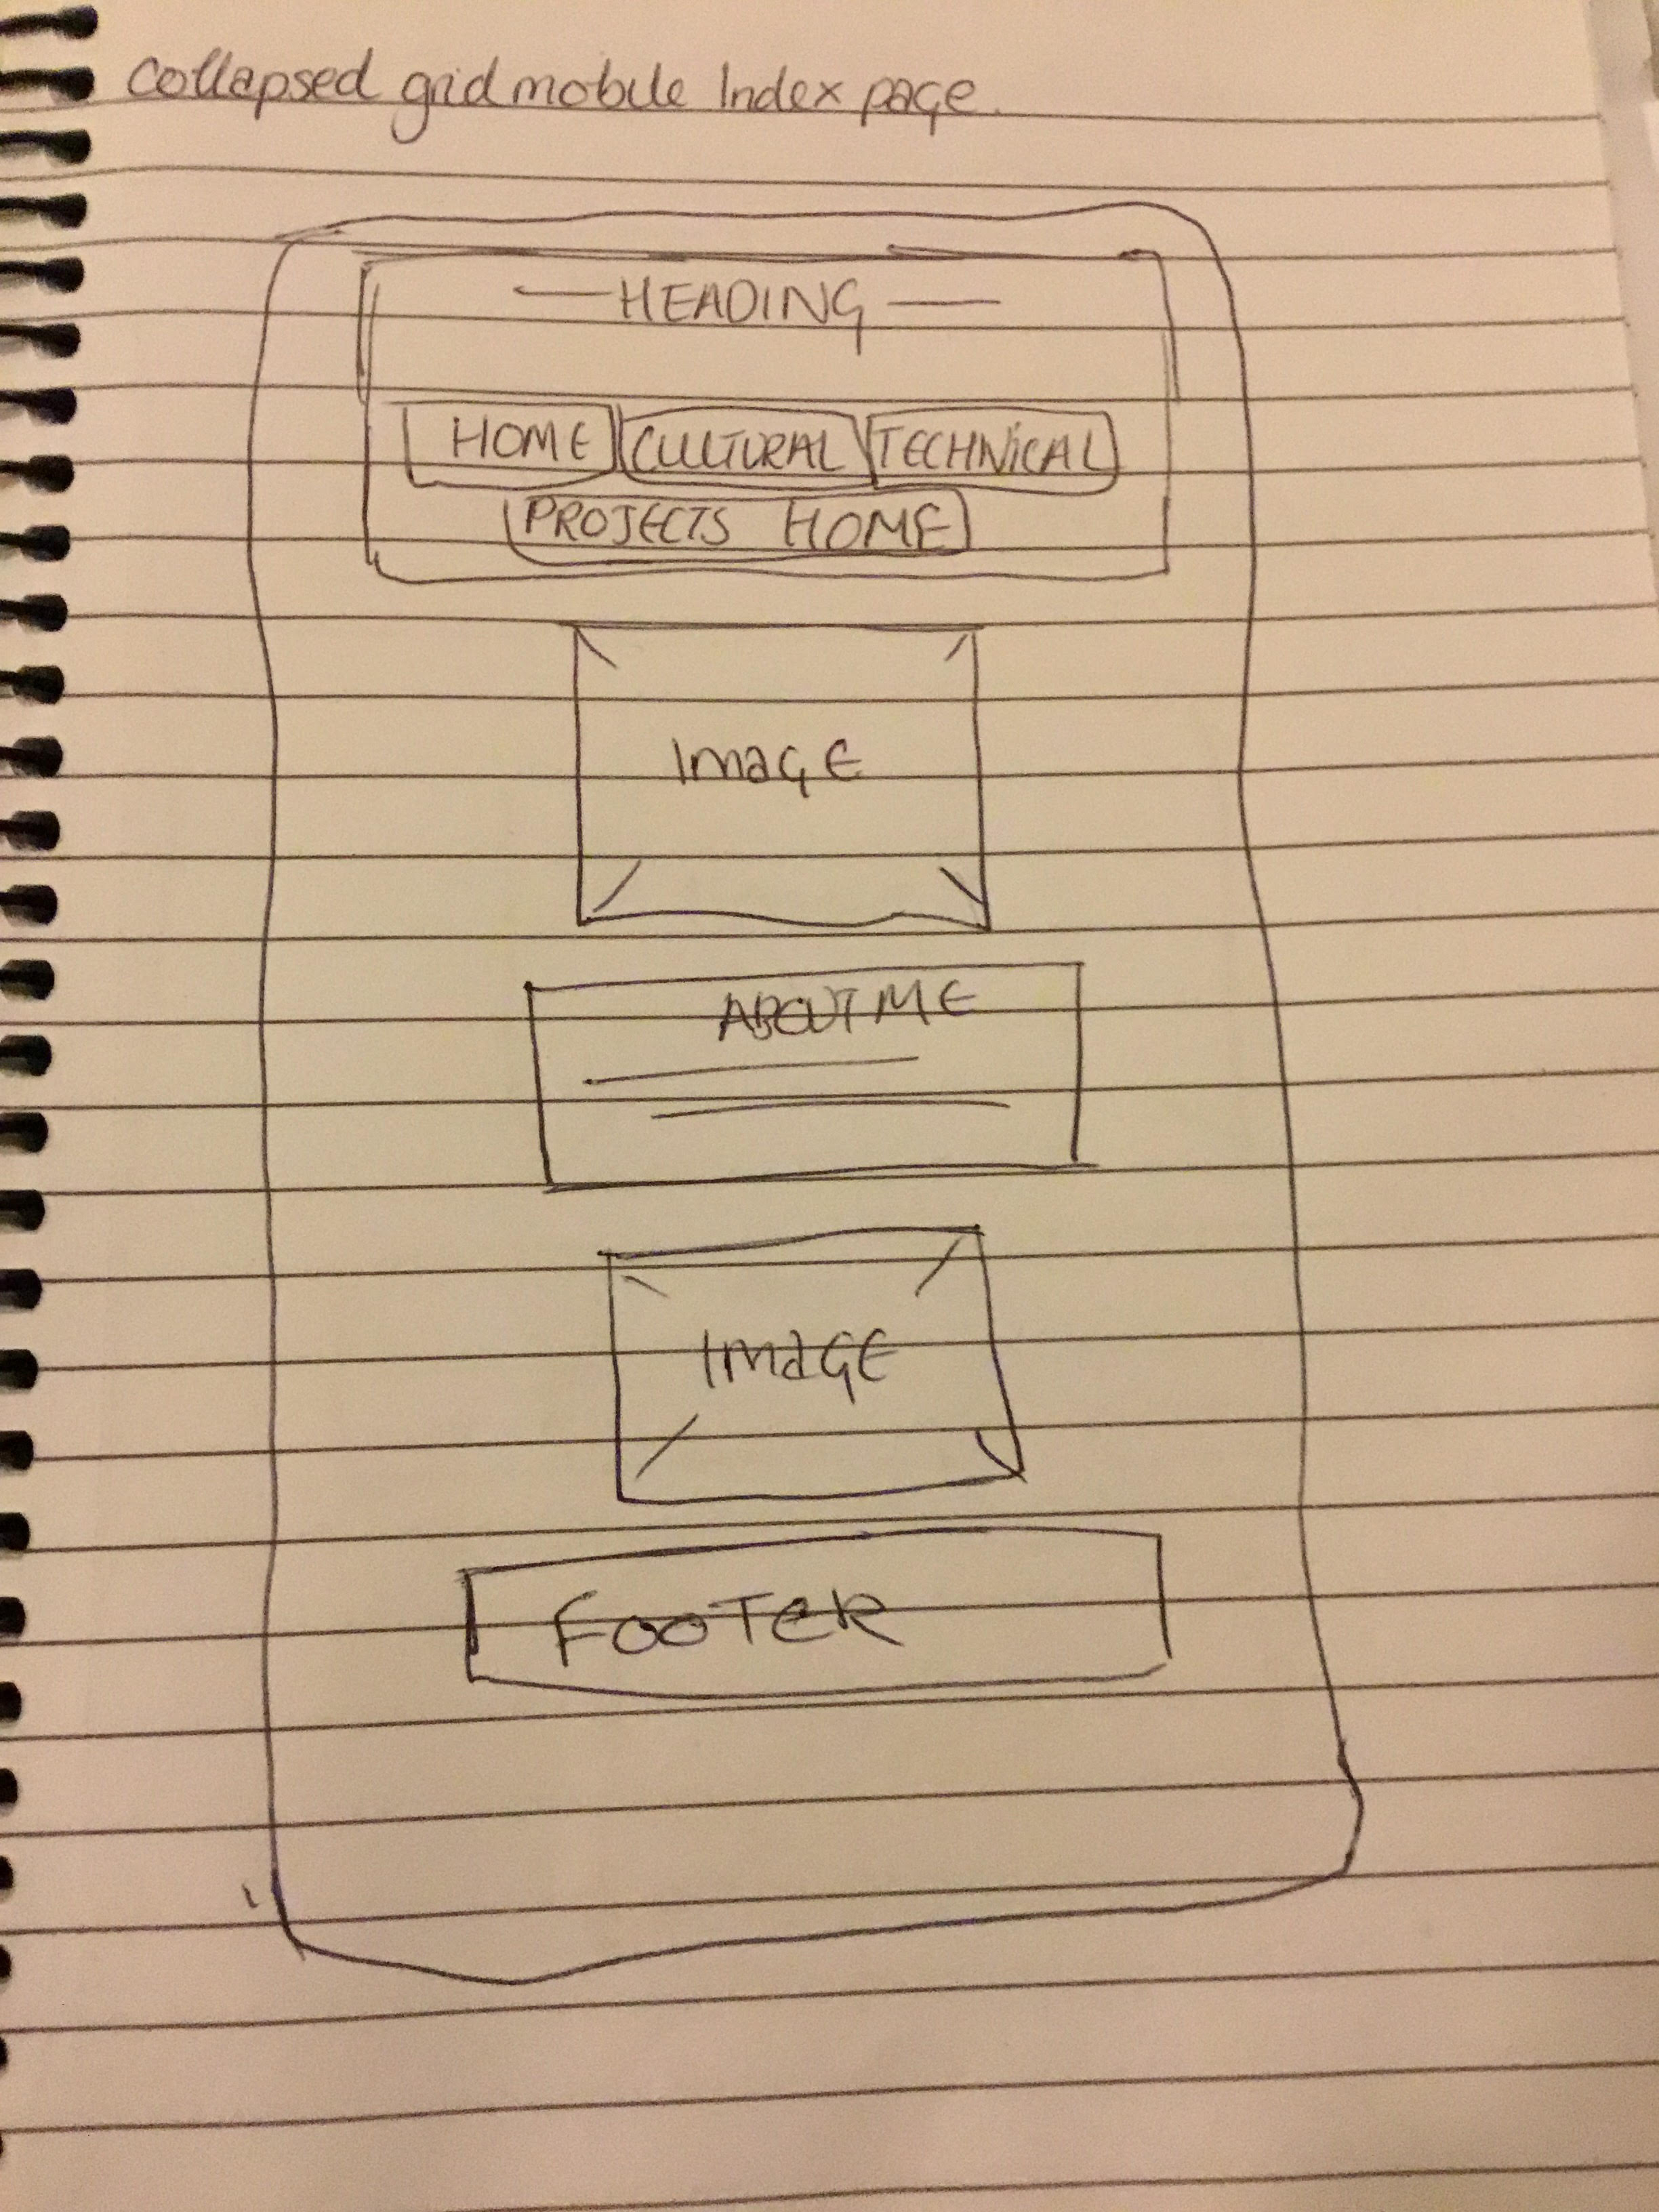 collapsed grid mobile Index page.
HEADING
HOME CULTURAL TECHNICAL
PROJECTS HOME
ImagE
ABOUT ME
ImaGE
FOOTER